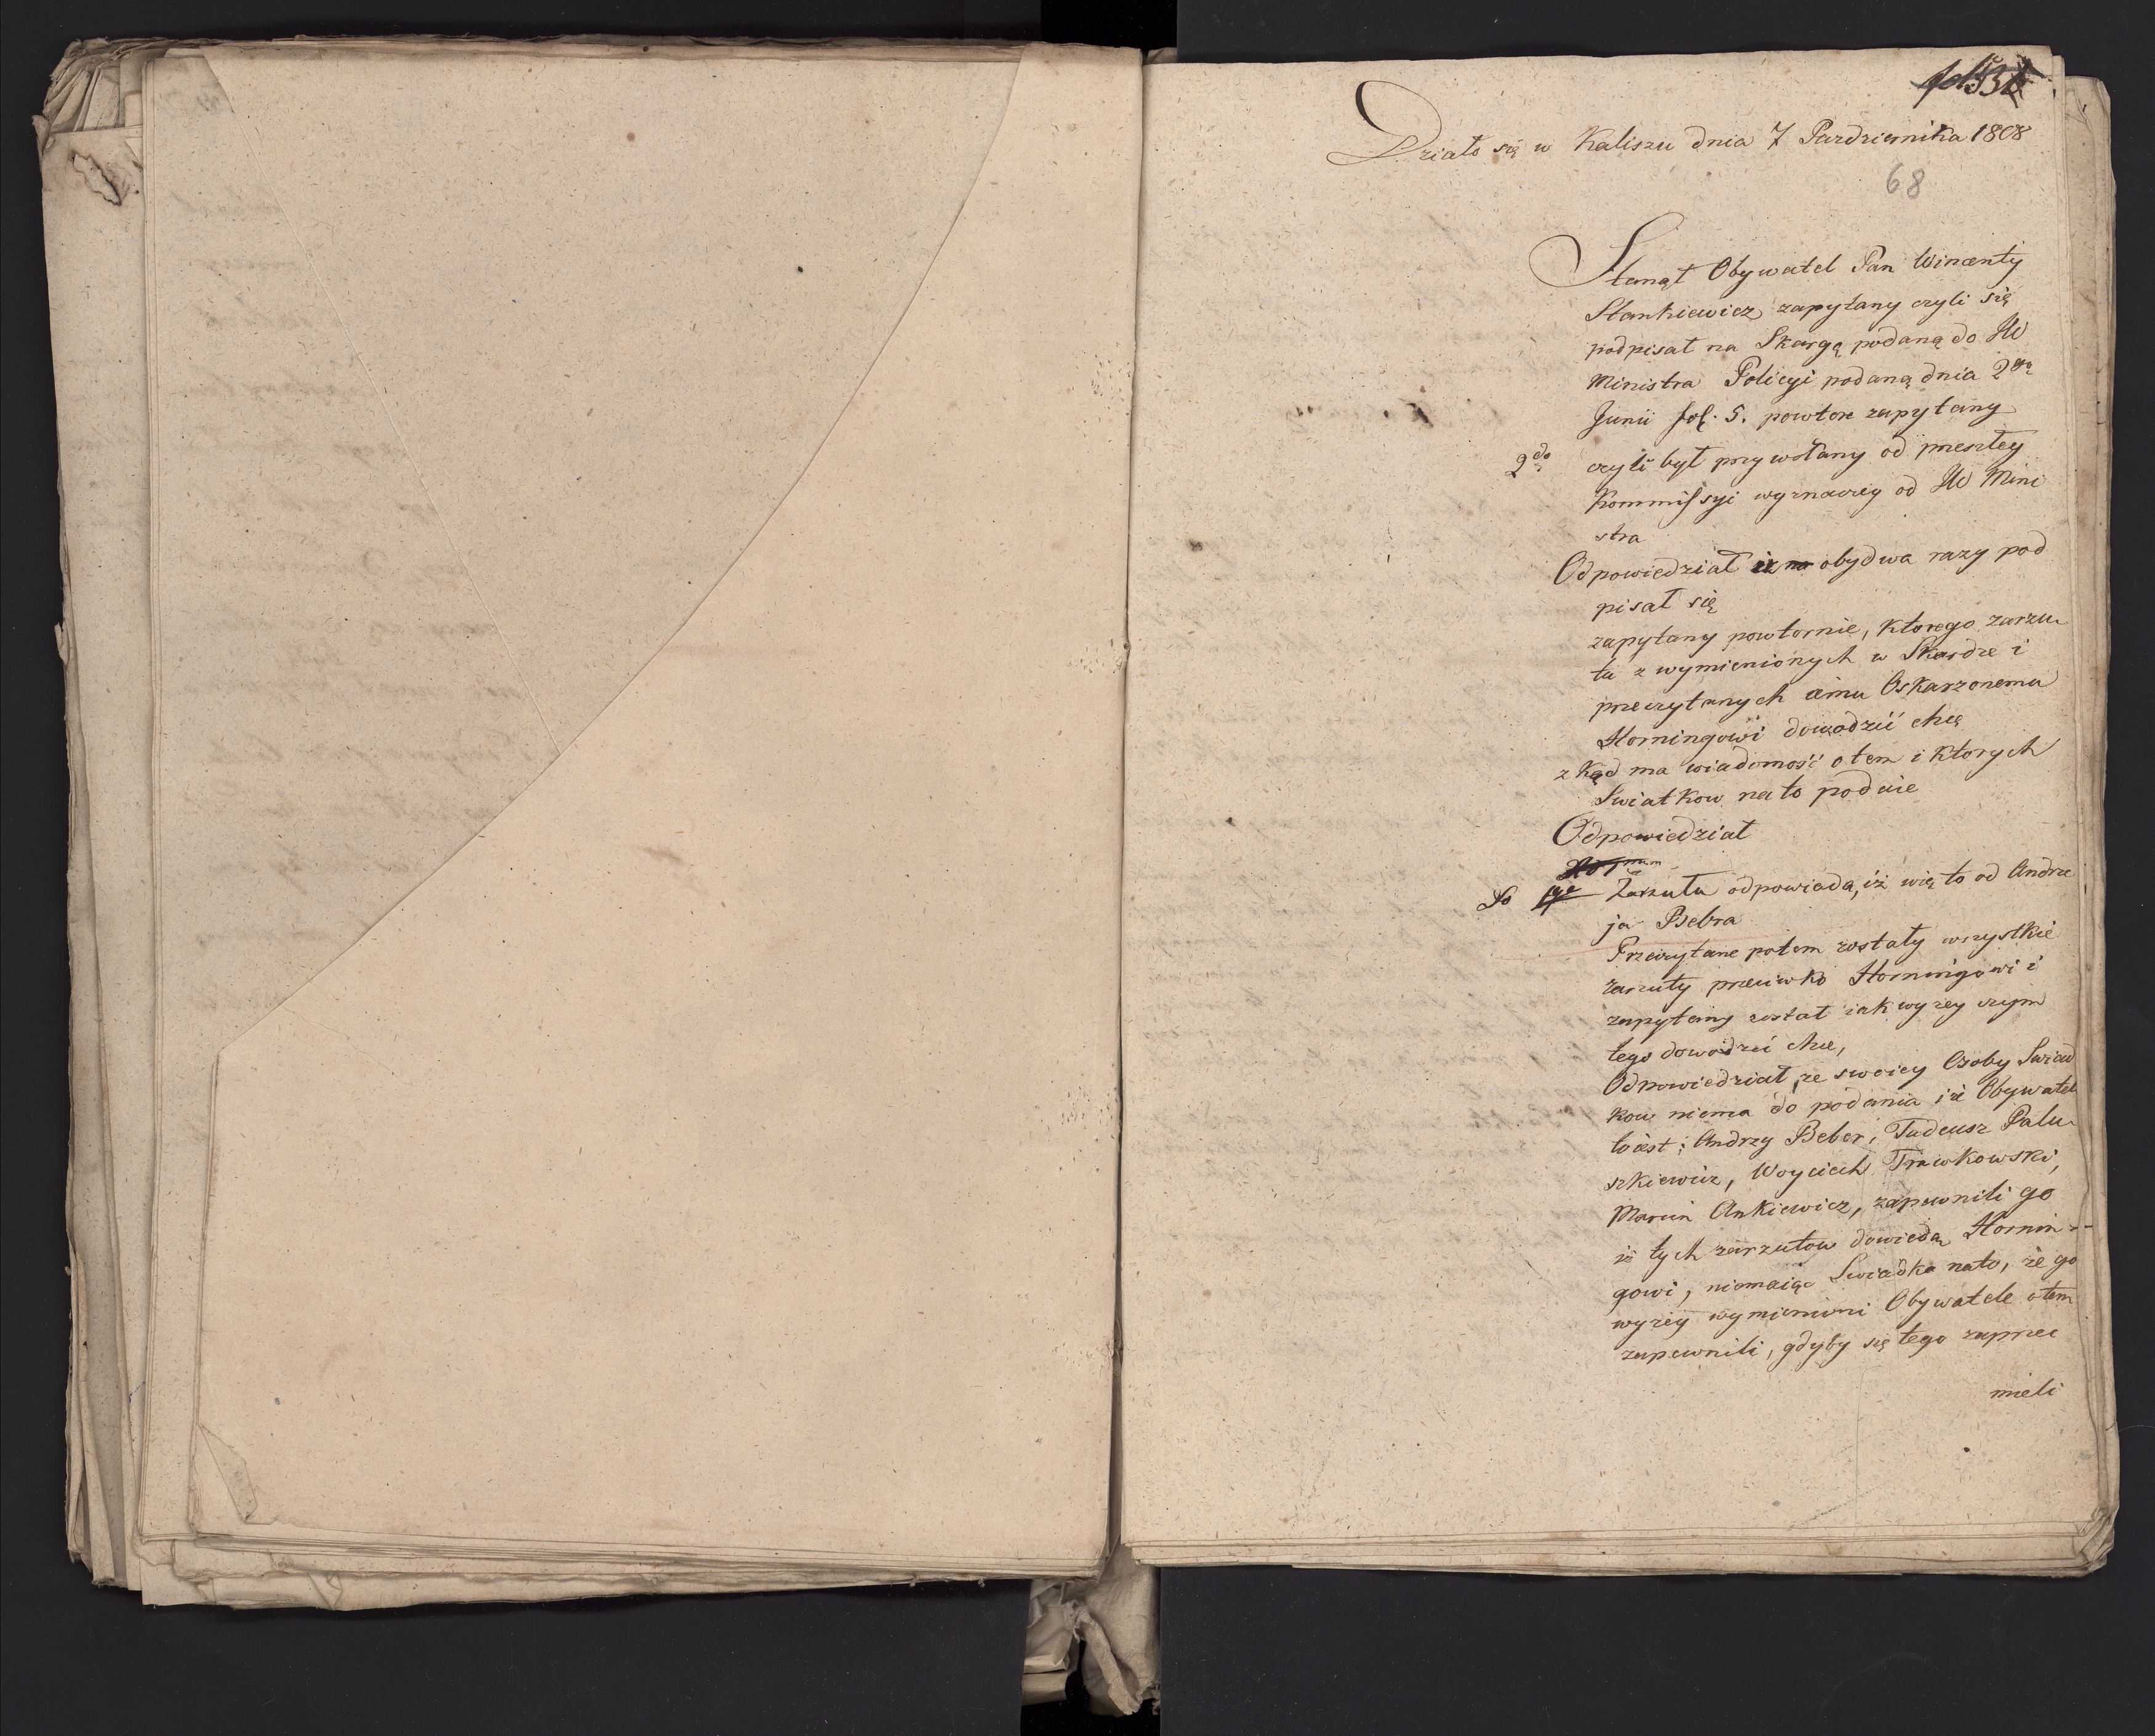 Działo się w Kaliszu dnia 7 Pazdziernika 1808
68
Stanął Obywatel Pan Wincenty
Stankiewicz zapytany czyli się
podpisał na Skargę podaną do JW
Ministra Policyi podaną dnia 2go
Junii fol. 5. powtore zapytany
2do czyli był przywołany od przeszłey
Kommissyi wyznaczey od JW Mini
stra
Odpowiedział iż obydwa razy pod
pisał się
zapytany powtornie, ktorego zarzu
tu z wymienionych w Skardze i
przeczytanych iemu Oskarzonemu
Horningowi dowodzić chcę
z kąd ma wiadomość o tem i ktorych
Swiatkow na to podaie
Odpowiedział
Zarzutu odpowiada, iż wię to od Andrze
ja Bebra
Przeczytane potem zostały wszystkie
zarzuty przeciwko Horningowi i
zapytany został iak wyzey czym
tego dowodzić chce,
Odpowiedział, ze swoiey Osoby Swiad
kow niema do podania iż Obywatel
to iest: Andrzy Beber, Tadeusz Palu
szkiewicz, Woyciech Trawkowski,
Marcin Ankiewicz, zapewnili go
iż tych zarzutow dowiedą Hornin-
gowi, niemaiąc Swiadka nato, że go
wyzey wymienieni Obywatele o tem
zapewnili, gdyby się tego zaprzec
mieli